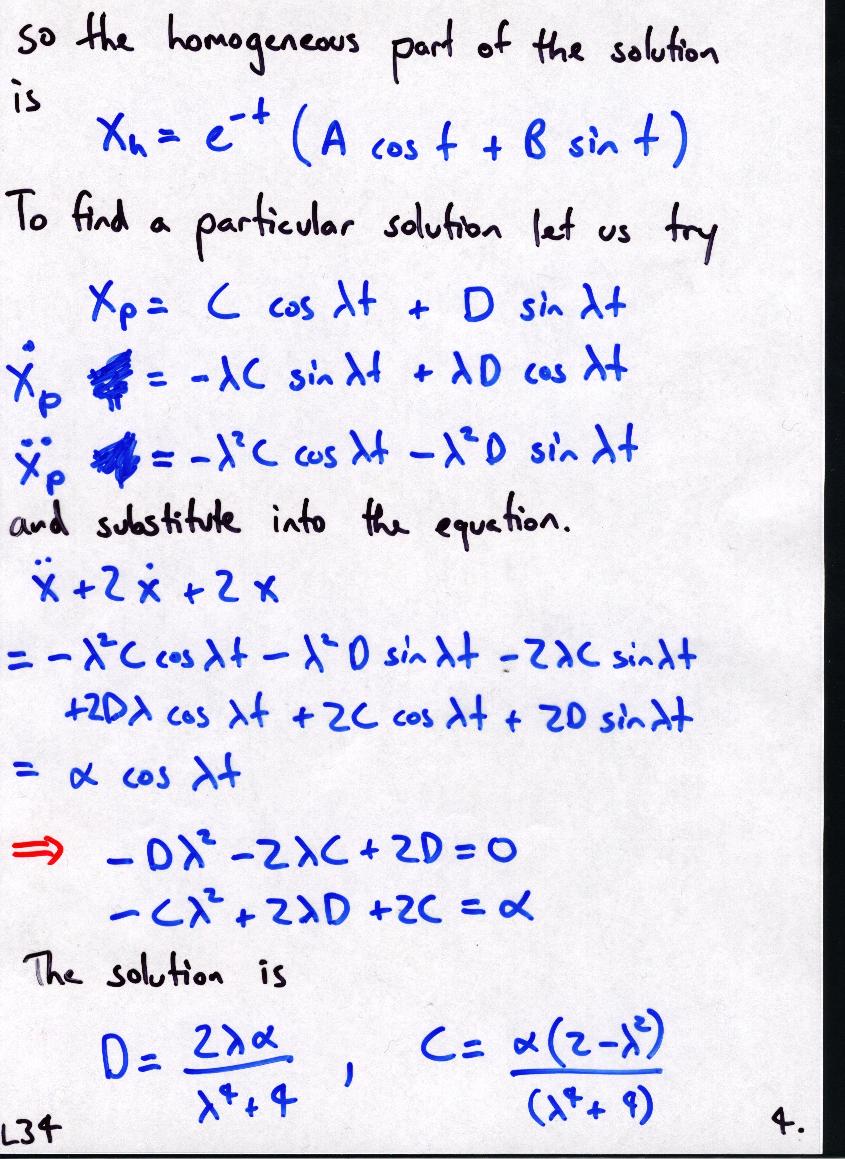 so the homogeneous part of the solution
is
Xₕ = e⁻ᵗ (A cos t + B sin t)
To find a particular solution let us try
Xₚ = C cos λt + D sin λt
Ẋₚ = -λC sin λt + λD cos λt
Ẍₚ = -λ²C cos λt - λ²D sin λt
and substitute into the equation.
ẍ + 2ẋ + 2x
= -λ²C cos λt - λ²D sin λt - 2λC sin λt
+2Dλ cos λt + 2C cos λt + 2D sin λt
= α cos λt
⇒ -Dλ² - 2λC + 2D = 0
-Cλ² + 2λD + 2C = α
The solution is
D = 2λα / (λ⁴ + 4) , C = α(2-λ²) / (λ⁴ + 4)
L34 4.